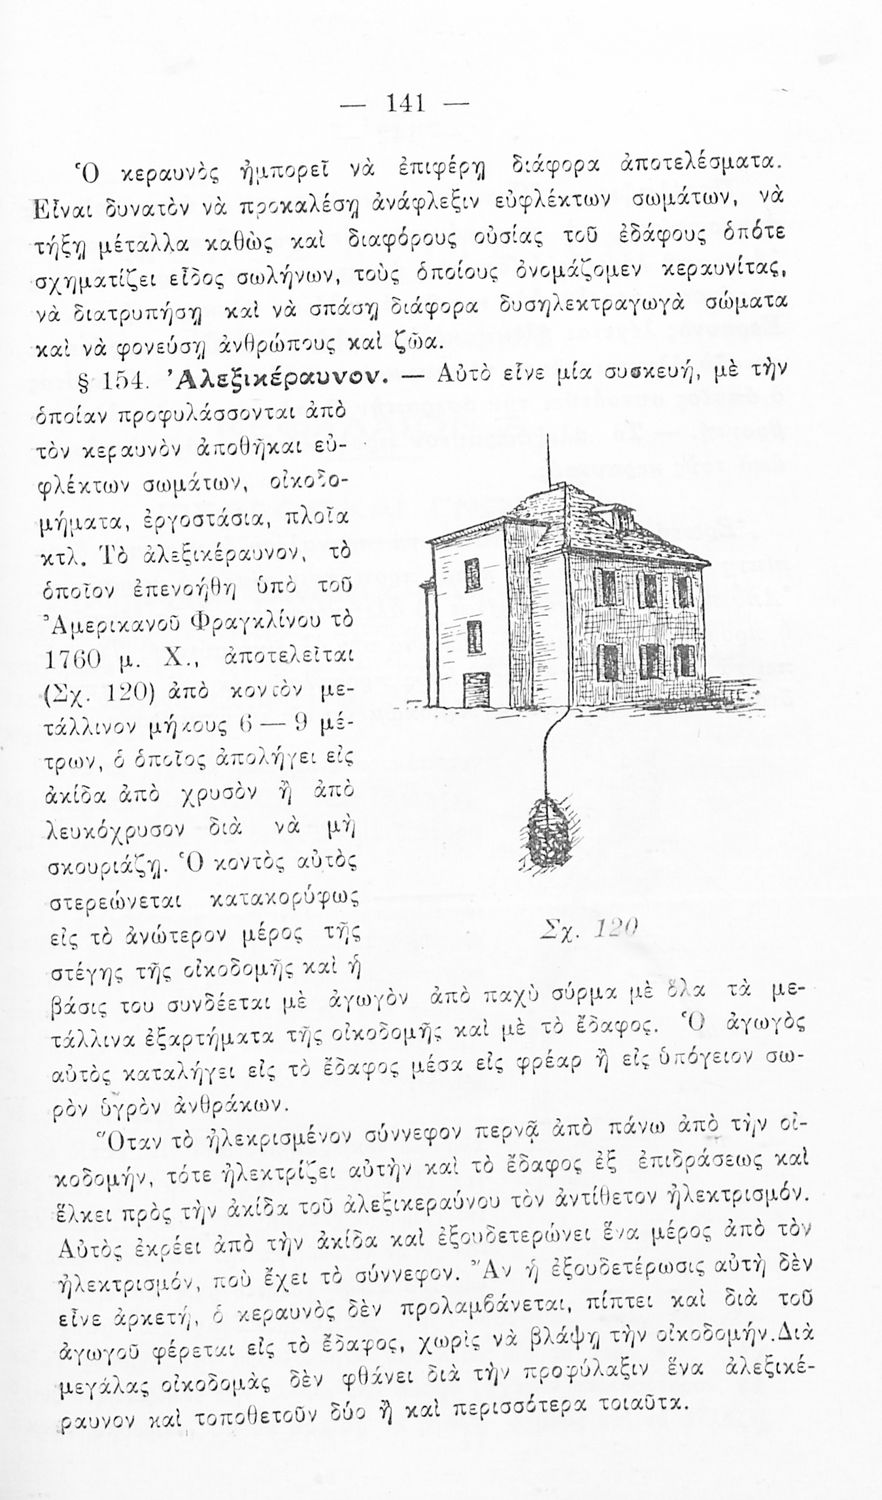 — 141 —
Ὁ κεραυνὸς ἠμπορεῖ νὰ ἐπιφέρῃ διάφορα ἀποτελέσματα.
Εἶναι δυνατὸν νὰ προκαλέσῃ ἀνάφλεξιν εὐφλέκτων σωμάτων, νὰ
τήξῃ μέταλλα καθὼς καὶ διαφόρους οὐσίας τοῦ ἐδάφους ὁπότε
σχηματίζει εἶδος σωλήνων, τοὺς ὁποίους ὀνομάζομεν κεραυνίτας,
νὰ διατρυπήσῃ καὶ νὰ σπάσῃ διάφορα δυσηλεκτραγωγὰ σώματα
καὶ νὰ φονεύσῃ ἀνθρώπους καὶ ζῶα.
§ 154. Ἀλεξικέραυνον. — Αὐτὸ εἶνε μία συσκευή, μὲ τὴν
ὁποίαν προφυλάσσονται ἀπὸ
τὸν κεραυνὸν ἀποθῆκαι εὐ-
φλέκτων σωμάτων, οἰκοδο-
μήματα, ἐργοστάσια, πλοῖα
κτλ. Τὸ ἀλεξικέραυνον, τὸ
ὁποῖον ἐπενοήθη ὑπὸ τοῦ
Ἀμερικανοῦ Φραγκλίνου τὸ
1760 μ. Χ., ἀποτελεῖται
(Σχ. 120) ἀπὸ κοντὸν με-
τάλλινον μήκους 6 — 9 μέ-
τρων, ὁ ὁποῖος ἀπολήγει εἰς
ἀκίδα ἀπὸ χρυσὸν ἢ ἀπὸ
λευκόχρυσον διὰ νὰ μὴ
σκουριάζῃ. Ὁ κοντὸς αὐτὸς
στερεώνεται κατακορύφως
εἰς τὸ ἀνώτερον μέρος τῆς
στέγης τῆς οἰκοδομῆς καὶ ἡ
Σχ. 120
βάσις του συνδέεται μὲ ἀγωγὸν ἀπὸ παχὺ σύρμα μὲ ὅλα τὰ με-
τάλλινα ἐξαρτήματα τῆς οἰκοδομῆς καὶ μὲ τὸ ἔδαφος. Ὁ ἀγωγὸς
αὐτὸς καταλήγει εἰς τὸ ἔδαφος μέσα εἰς φρέαρ ἢ εἰς ὑπόγειον σω-
ρὸν ὑγρὸν ἀνθράκων.
Ὅταν τὸ ἠλεκρισμένον σύννεφον περνᾷ ἀπὸ πάνω ἀπὸ τὴν οἰ-
κοδομήν, τότε ἠλεκτρίζει αὐτὴν καὶ τὸ ἔδαφος ἐξ ἐπιδράσεως καὶ
ἕλκει πρὸς τὴν ἀκίδα τοῦ ἀλεξικεραύνου τὸν ἀντίθετον ἠλεκτρισμόν.
Αὐτὸς ἐκρέει ἀπὸ τὴν ἀκίδα καὶ ἐξουδετερώνει ἕνα μέρος ἀπὸ τὸν
ἠλεκτρισμόν, ποὺ ἔχει τὸ σύννεφον. Ἂν ἡ ἐξουδετέρωσις αὐτὴ δὲν
εἶνε ἀρκετή, ὁ κεραυνὸς δὲν προλαμβάνεται, πίπτει καὶ διὰ τοῦ
ἀγωγοῦ φέρεται εἰς τὸ ἔδαφος, χωρὶς νὰ βλάψῃ τὴν οἰκοδομήν.Διὰ
μεγάλας οἰκοδομὰς δὲν φθάνει διὰ τὴν προφύλαξιν ἕνα ἀλεξικέ-
ραυνον καὶ τοποθετοῦν δύο ἢ καὶ περισσότερα τοιαῦτα.